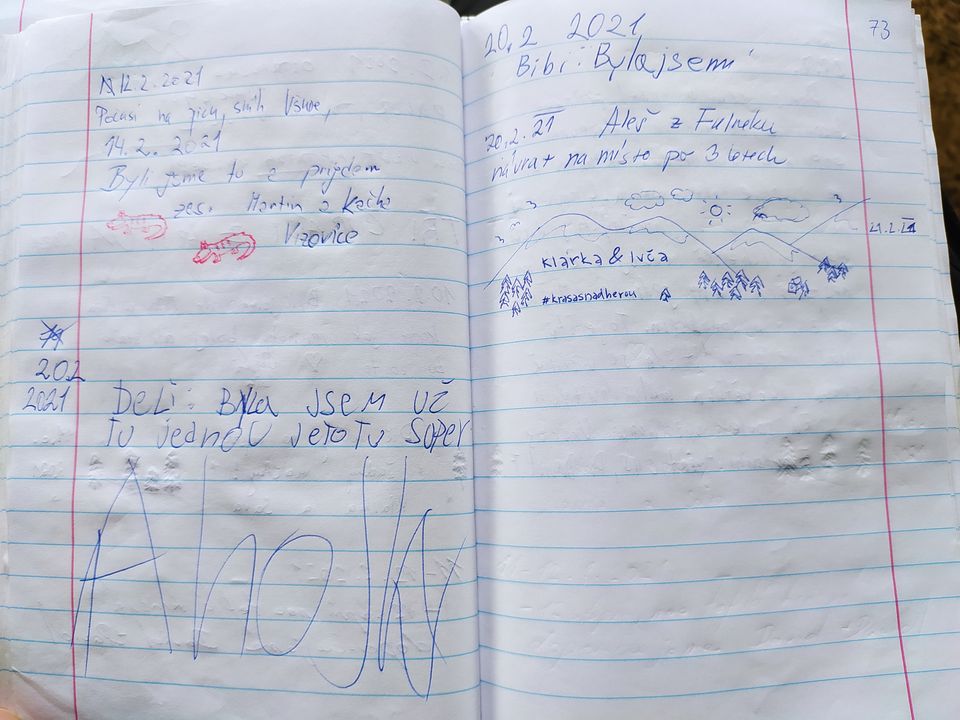 12.2.2021
Počasí na piču, sníh všude,
14.2.2021
Byli jsme tu a prijdem
zas. Martin a Kačka
Vizovice
20.2
2021
DELI: BYla JSEM UŽ
TU jednou jeTo TU SUPER
AhoJky
20.2 2021
Bibi: Byla jsem
73
20.2. 21 Aleš z Fulneku
návrat na místo po 3 letech
21.2.21
Klárka & Ivča
#krasasnadherou